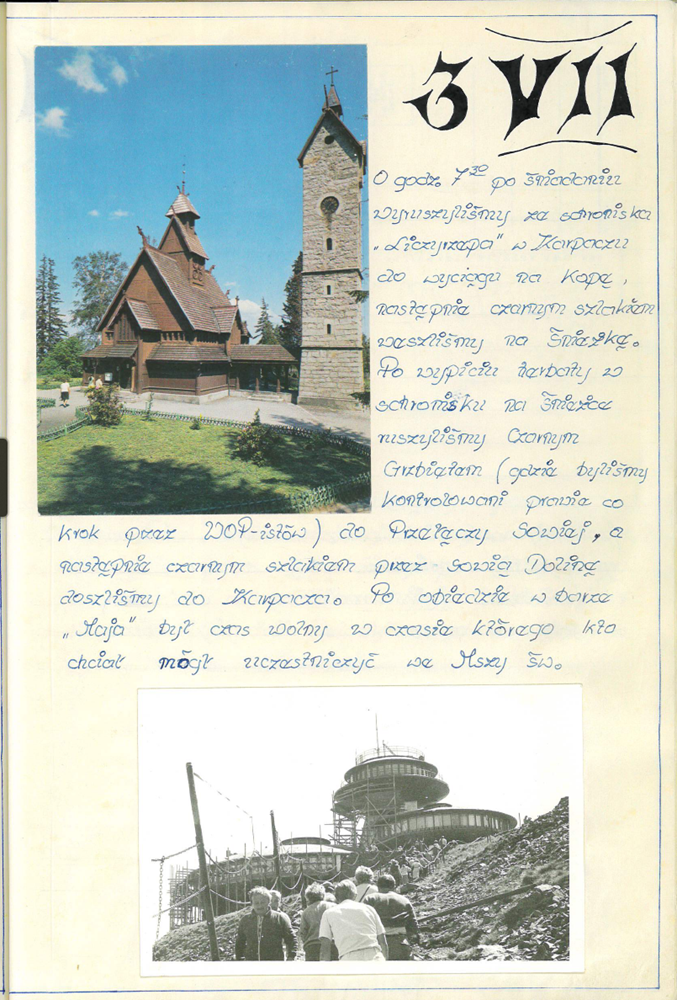 3 VII
O godz. 7³⁰ po śniadaniu
wyruszyliśmy ze schroniska
„Liczyrzepa" w Karpaczu
do wyciągu na Kopę,
następnie czarnym szlakiem
weszliśmy na Śnieżkę.
Po wypiciu herbaty w
schronisku na Śnieżce
ruszyliśmy Czarnym
Grzbietem (gdzie byliśmy
kontrolowani prawie co
krok przez WOP-istów) do Przełęczy Sowiej, a
następnie czarnym szlakiem przez Sowią Dolinę
doszliśmy do Karpacza. Po obiedzie w barze
„Maja" był czas wolny w czasie którego kto
chciał mógł uczestniczyć we Mszy św.